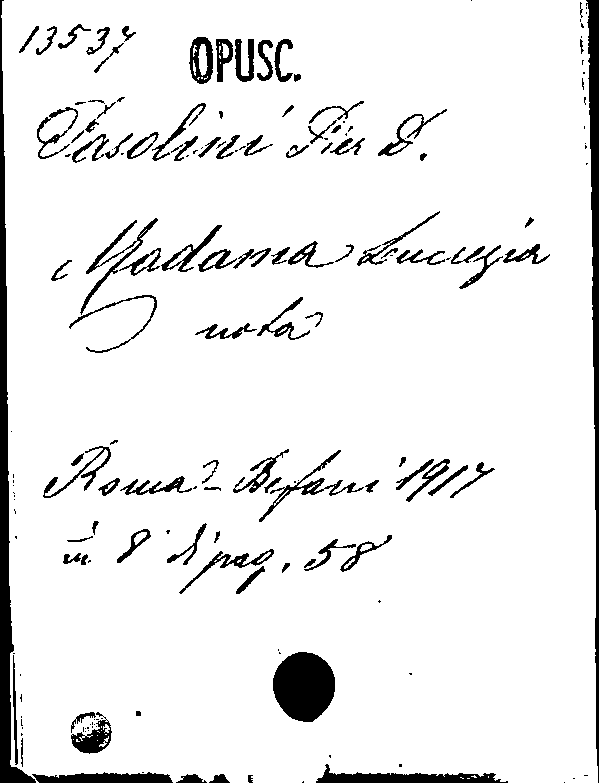 13537
OPUSC.
Pasolini Pier D.
Madama Lucrezia
nota
Roma - Befani 1917
in 8° di pag. 58